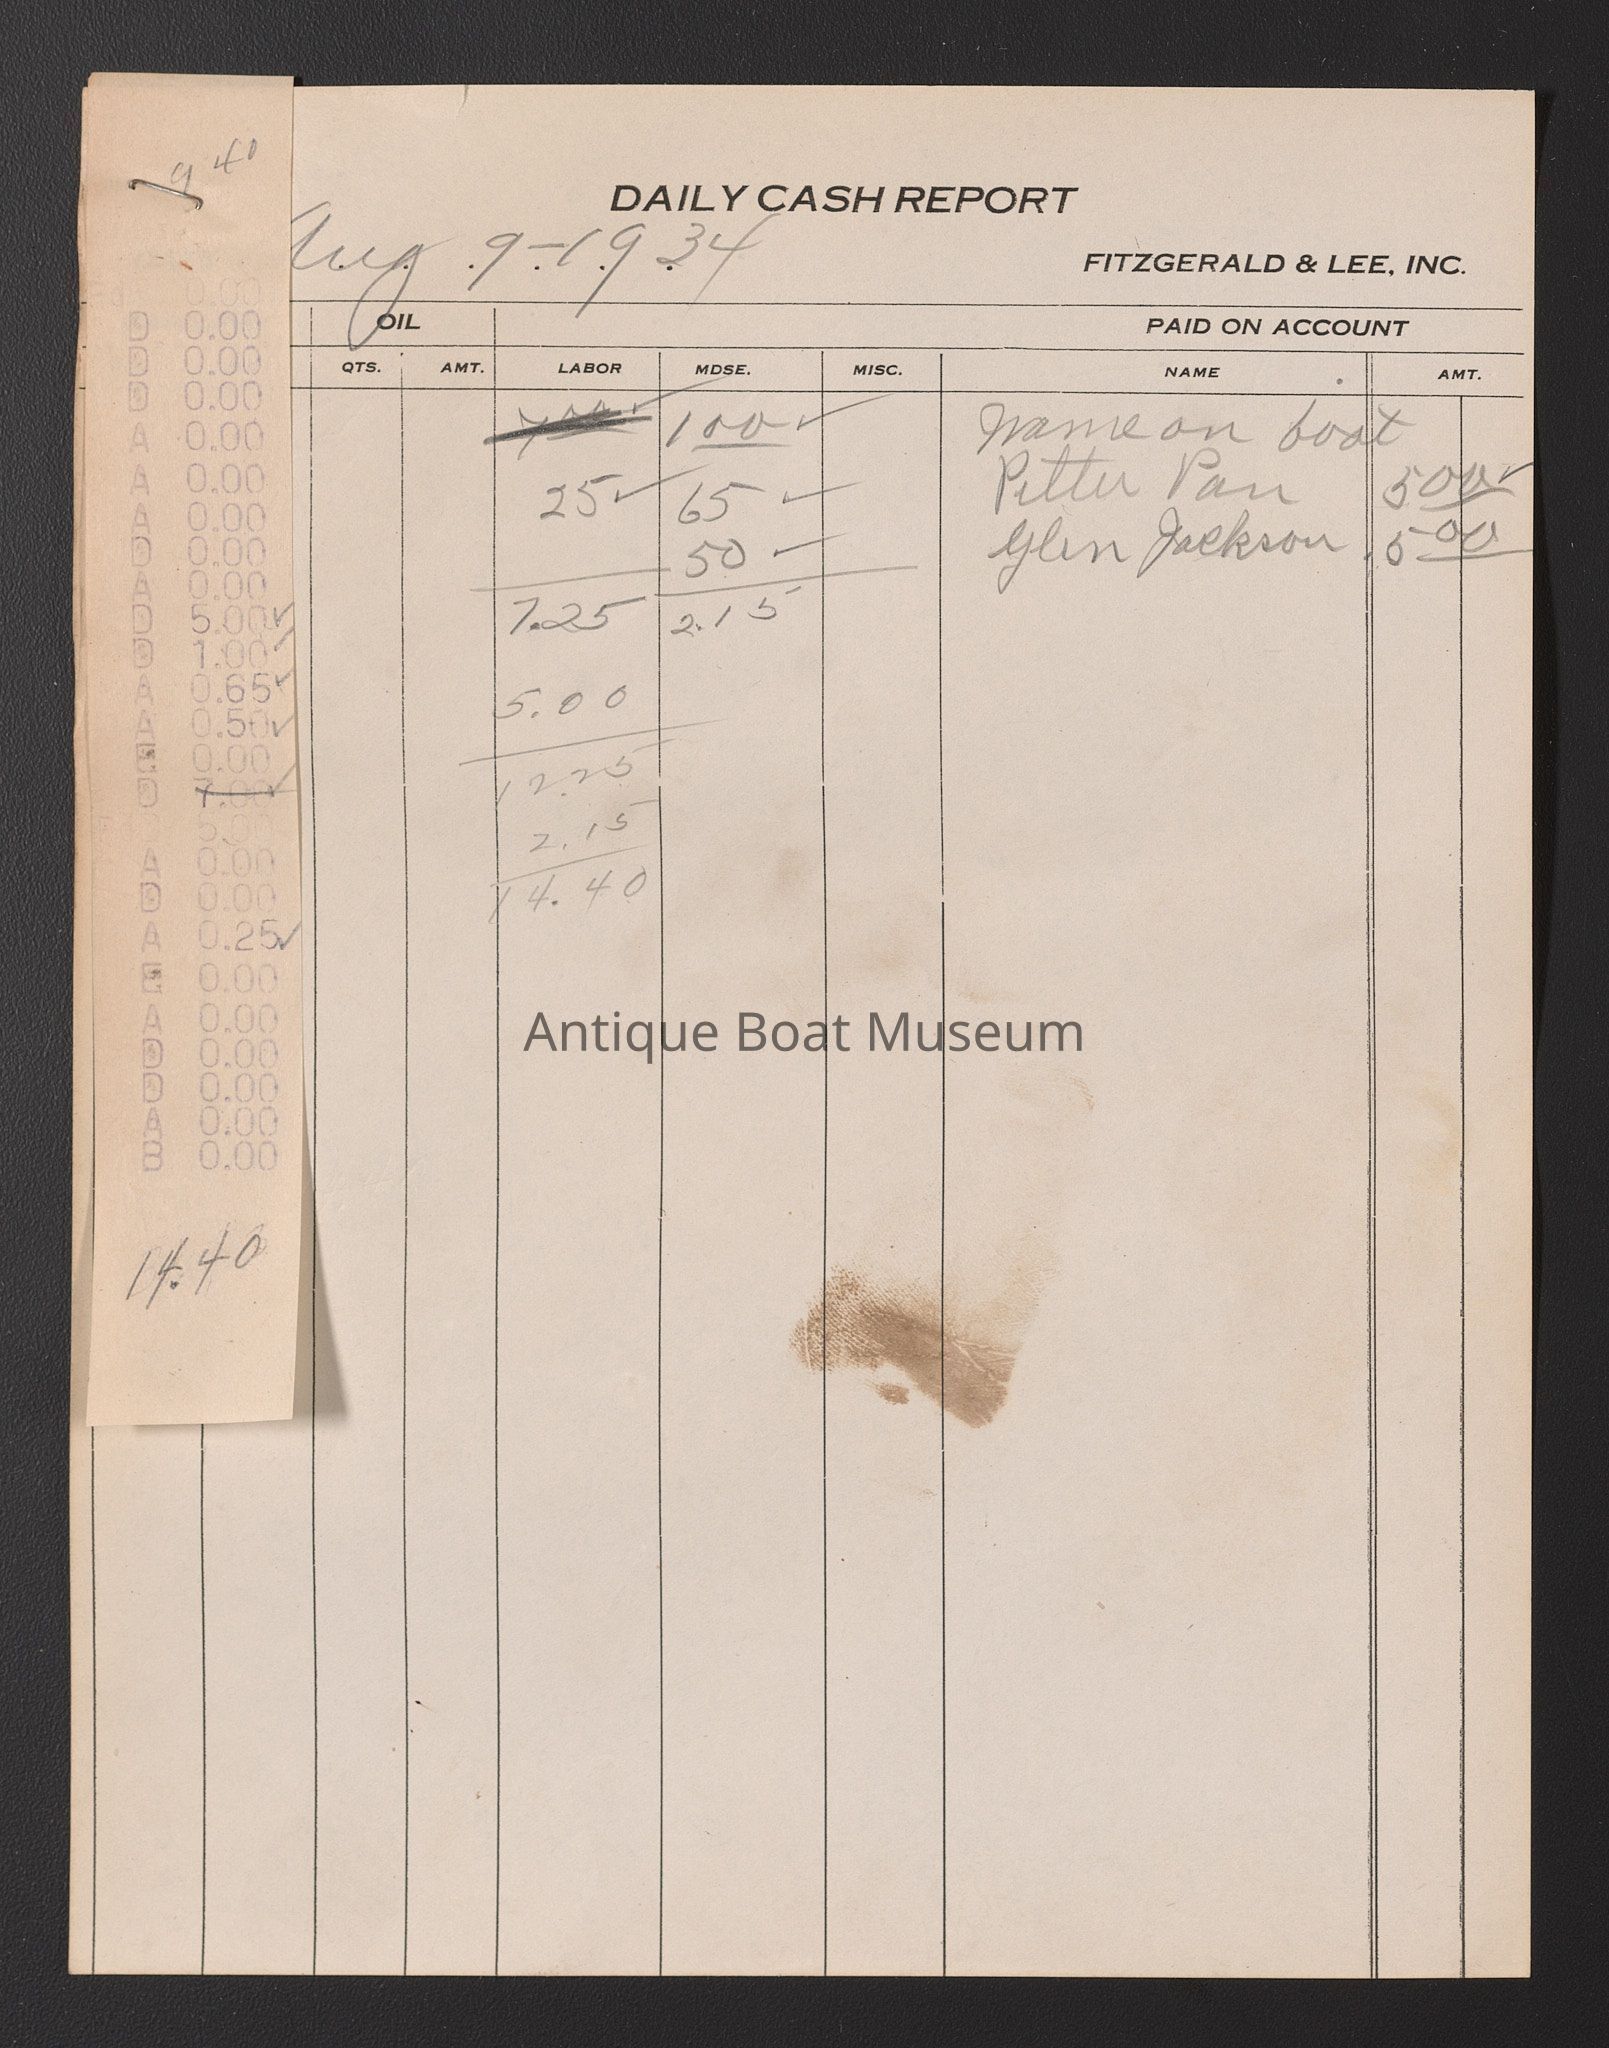 9 40
DAILY CASH REPORT
Aug. 9-1934
FITZGERALD & LEE, INC.
OIL
PAID ON ACCOUNT
QTS. AMT. LABOR MDSE. MISC. NAME AMT.
7 00 1 00 Name on boat
25 65 Petter Pan 5 00
50 Glen Jackson 5 00
7.25 2.15
5.00
12.25
2.15
14.40
0.00
D 0.00
D 0.00
D 0.00
A 0.00
A 0.00
A 0.00
D 0.00
A 0.00
D 5.00
D 1.00
A 0.65
A 0.50
E 0.00
D 7.00
5.00
A 0.00
D 0.00
A 0.25
E 0.00
A 0.00
D 0.00
D 0.00
A 0.00
B 0.00
14.40
Antique Boat Museum